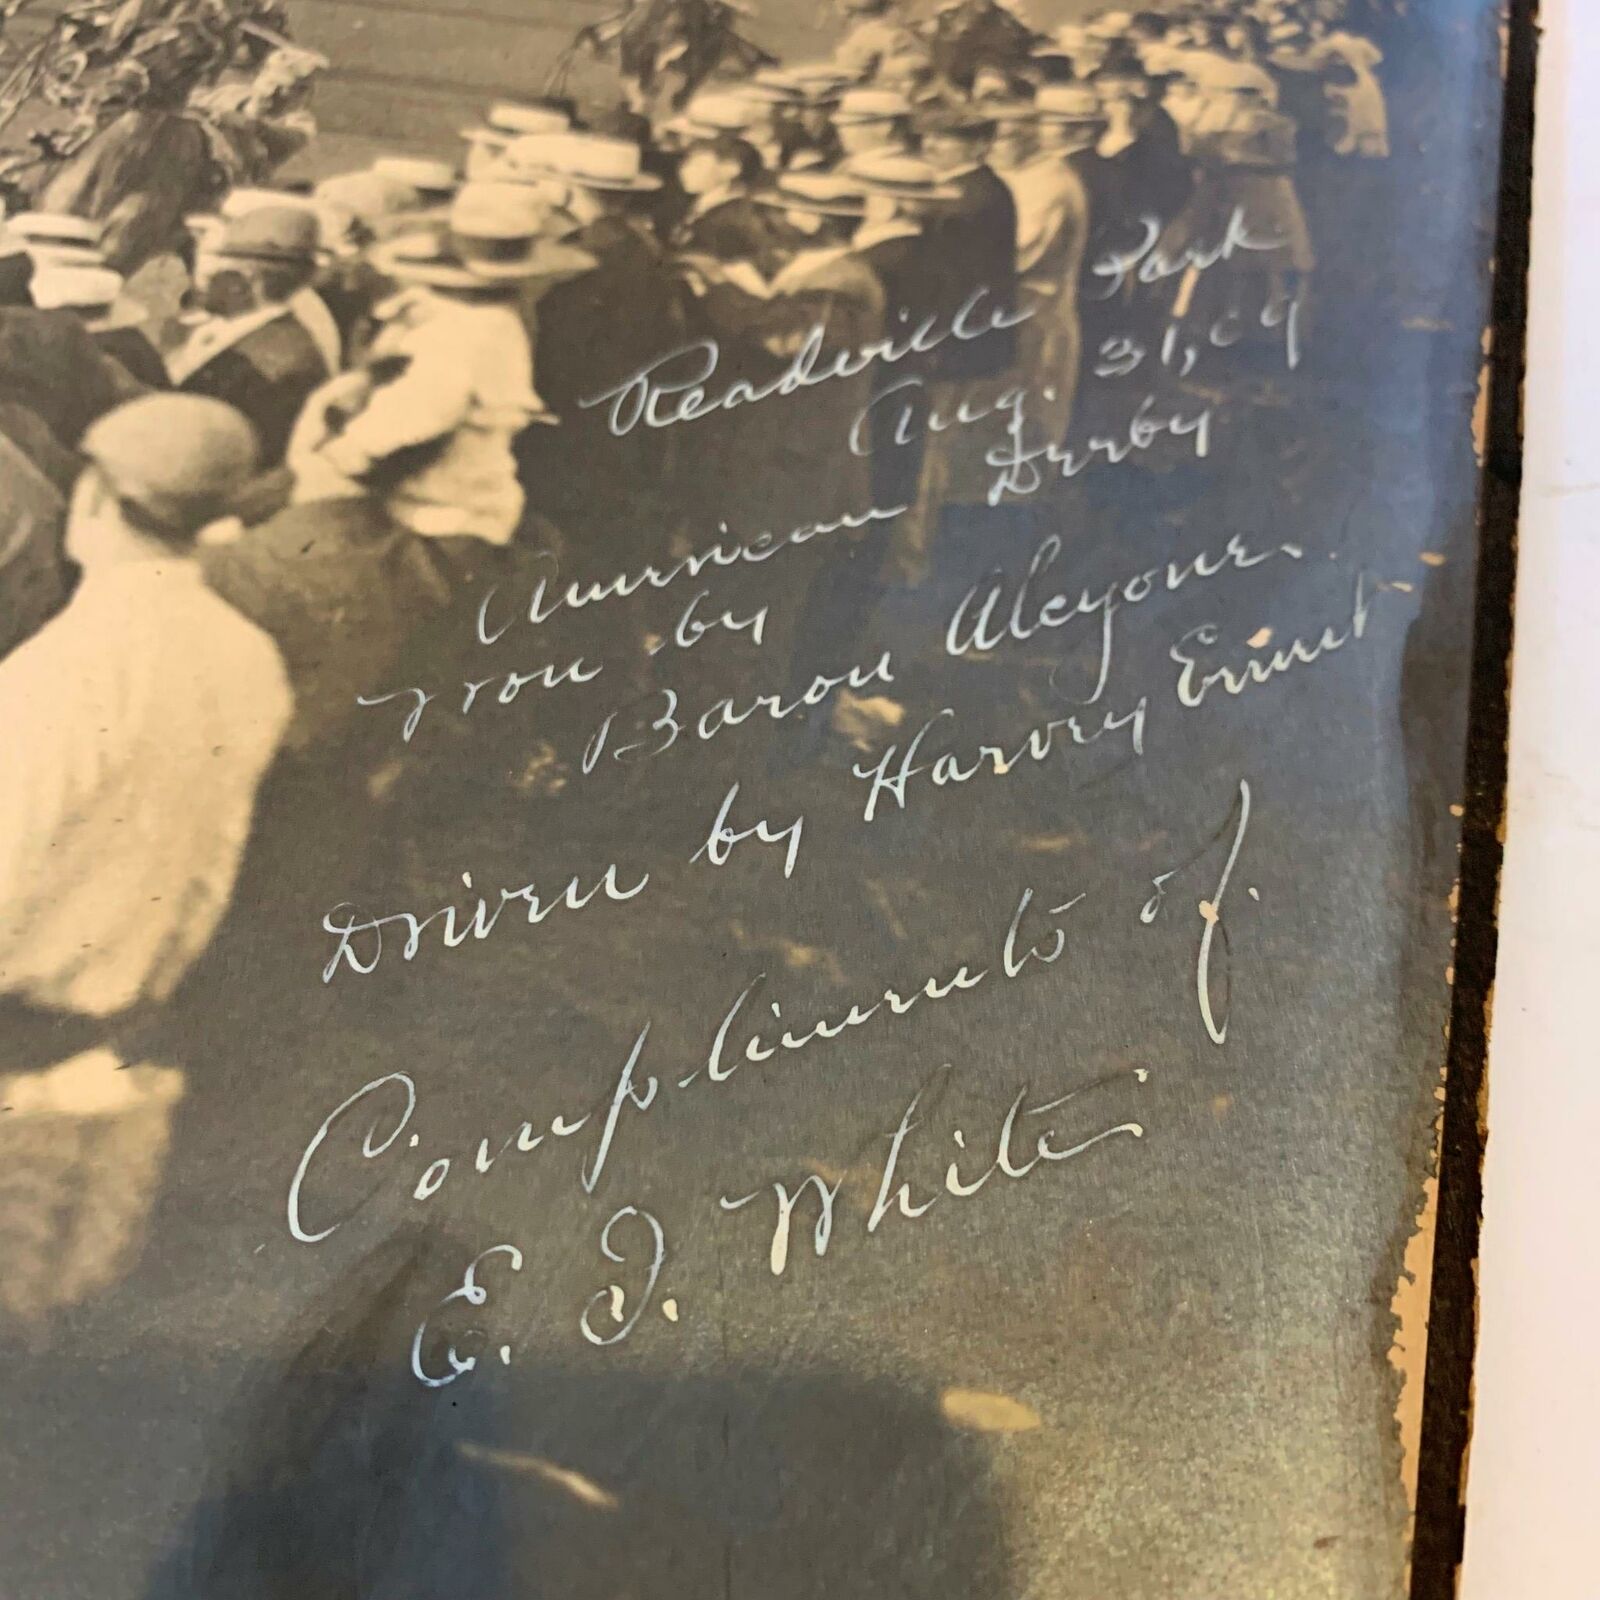 Readville Park
Aug. 31, 09
American Derby
Won by
Baron Alcyone.
Driven by Harvey Ernest
Compliments of.
E. J. White.